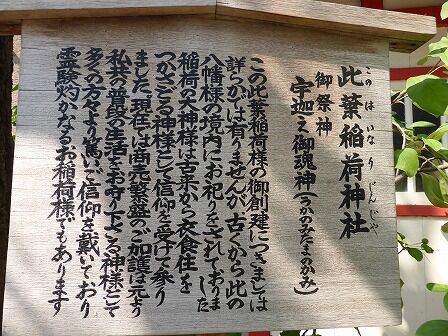 此葉稲荷神社
このはいなりじんじゃ
御祭神
宇迦之御魂神（うかのみたまのかみ）
この此葉稲荷様の御創建につきましては
詳らかでは有りませんが古くから此の
八幡様の境内にお祀りをされておりました
稲荷の大神様は古来から衣食住を
つかさどる神様として信仰を受けて参り
ました現在では商売繁盛のご加護は元より
私共の普段の生活をお守り下さる神様として
多くの方々より篤いご信仰を戴いており
霊験灼かなるお稲荷様でもあります